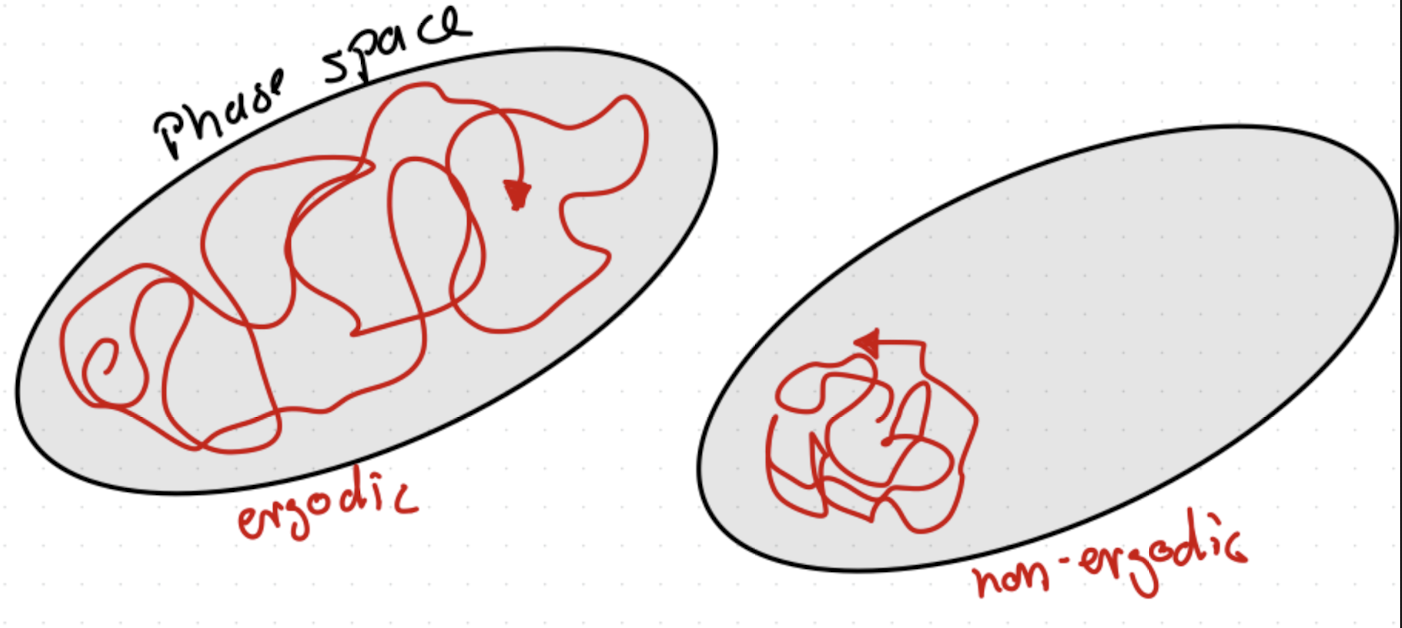 Phase space
ergodic
non-ergodic